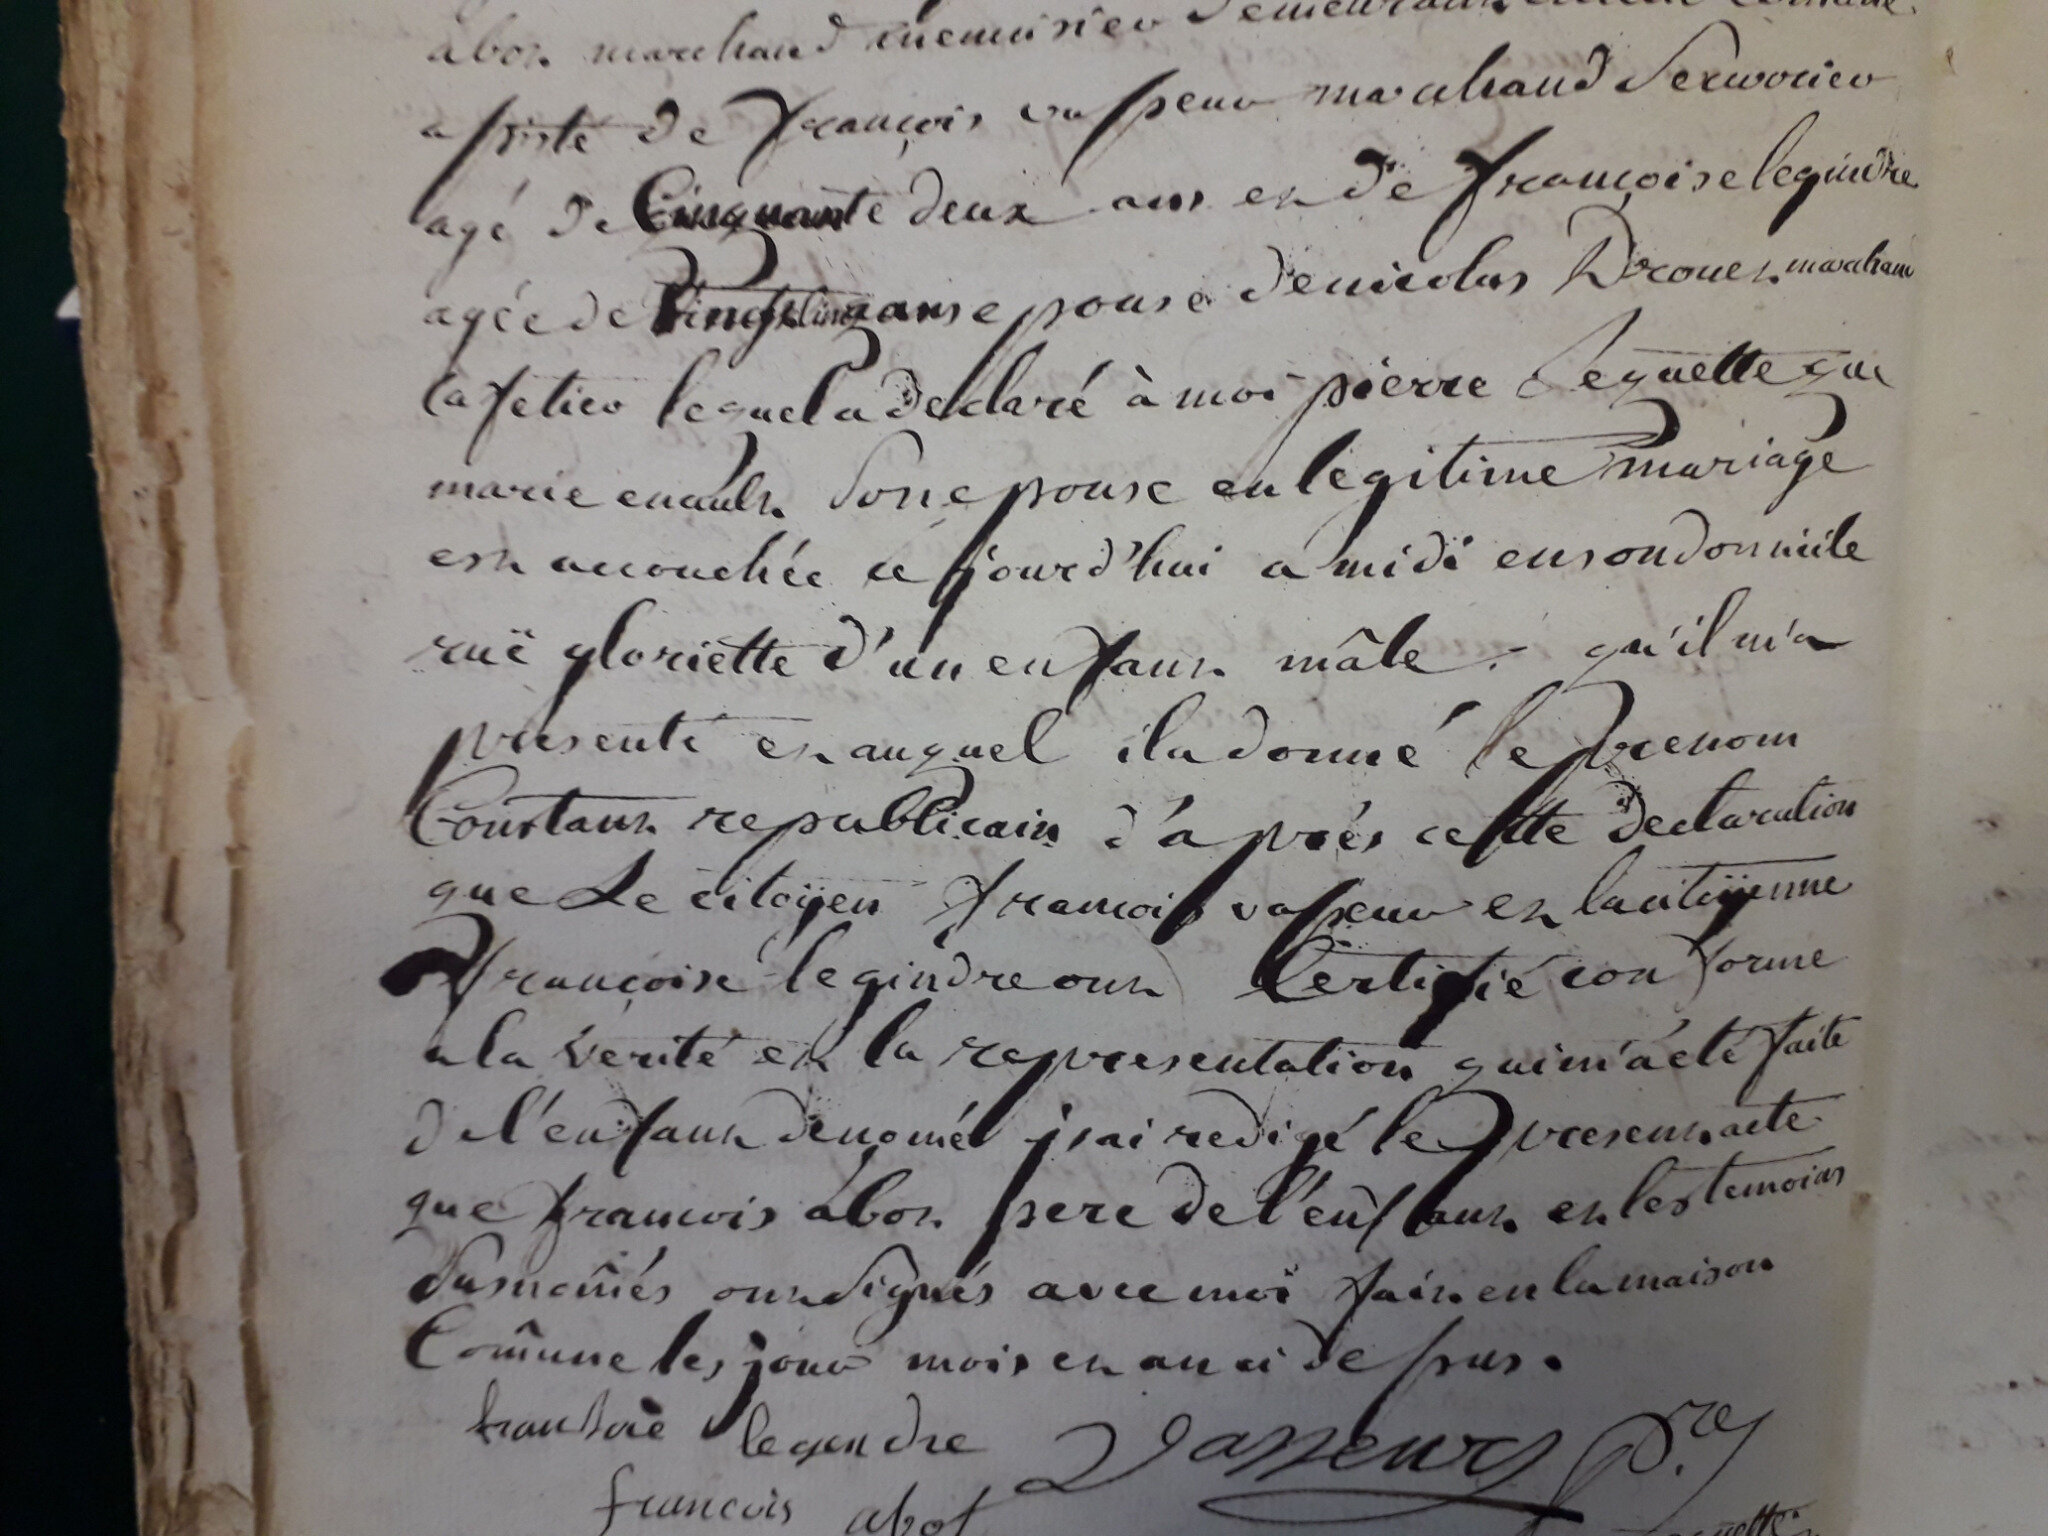 abot marchand menuisier demeurant en cette comune.
assisté de françois vasseur marchand serurier
agé de Cinquante deux ans et de françoise legindre
agée de Vingt cinq ans epouse de nicolas Drouet marchand
cafetier lequel a declaré à moi pierre Lequette que
marie enault son epouse en legitime mariage
est accouchée ce jourd'hui a midi en son domicile
ruë gloriette d'un enfant mâle. qu'il m'a
presenté et auquel il a donné le prenom
Constant republicain d'après cette declaration
que Le citoÿen françois vasseur et la citoÿenne
françoise legindre ont Certifié conforme
a la verité et la representation qui m'a eté faite
de l'enfant denomé j'ai redigé le present acte
que françois abot pere de l'enfant et les temoins
susnomés ont signés avec moi fait en la maison
Comune les jour mois et an ci dessus.
fransoie legendre Vasseur P.re
françois abot